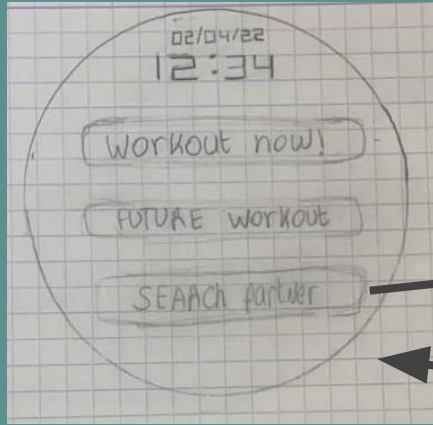 02/04/22
12:34
Workout now!
FUTURE Workout
SEARCh partner